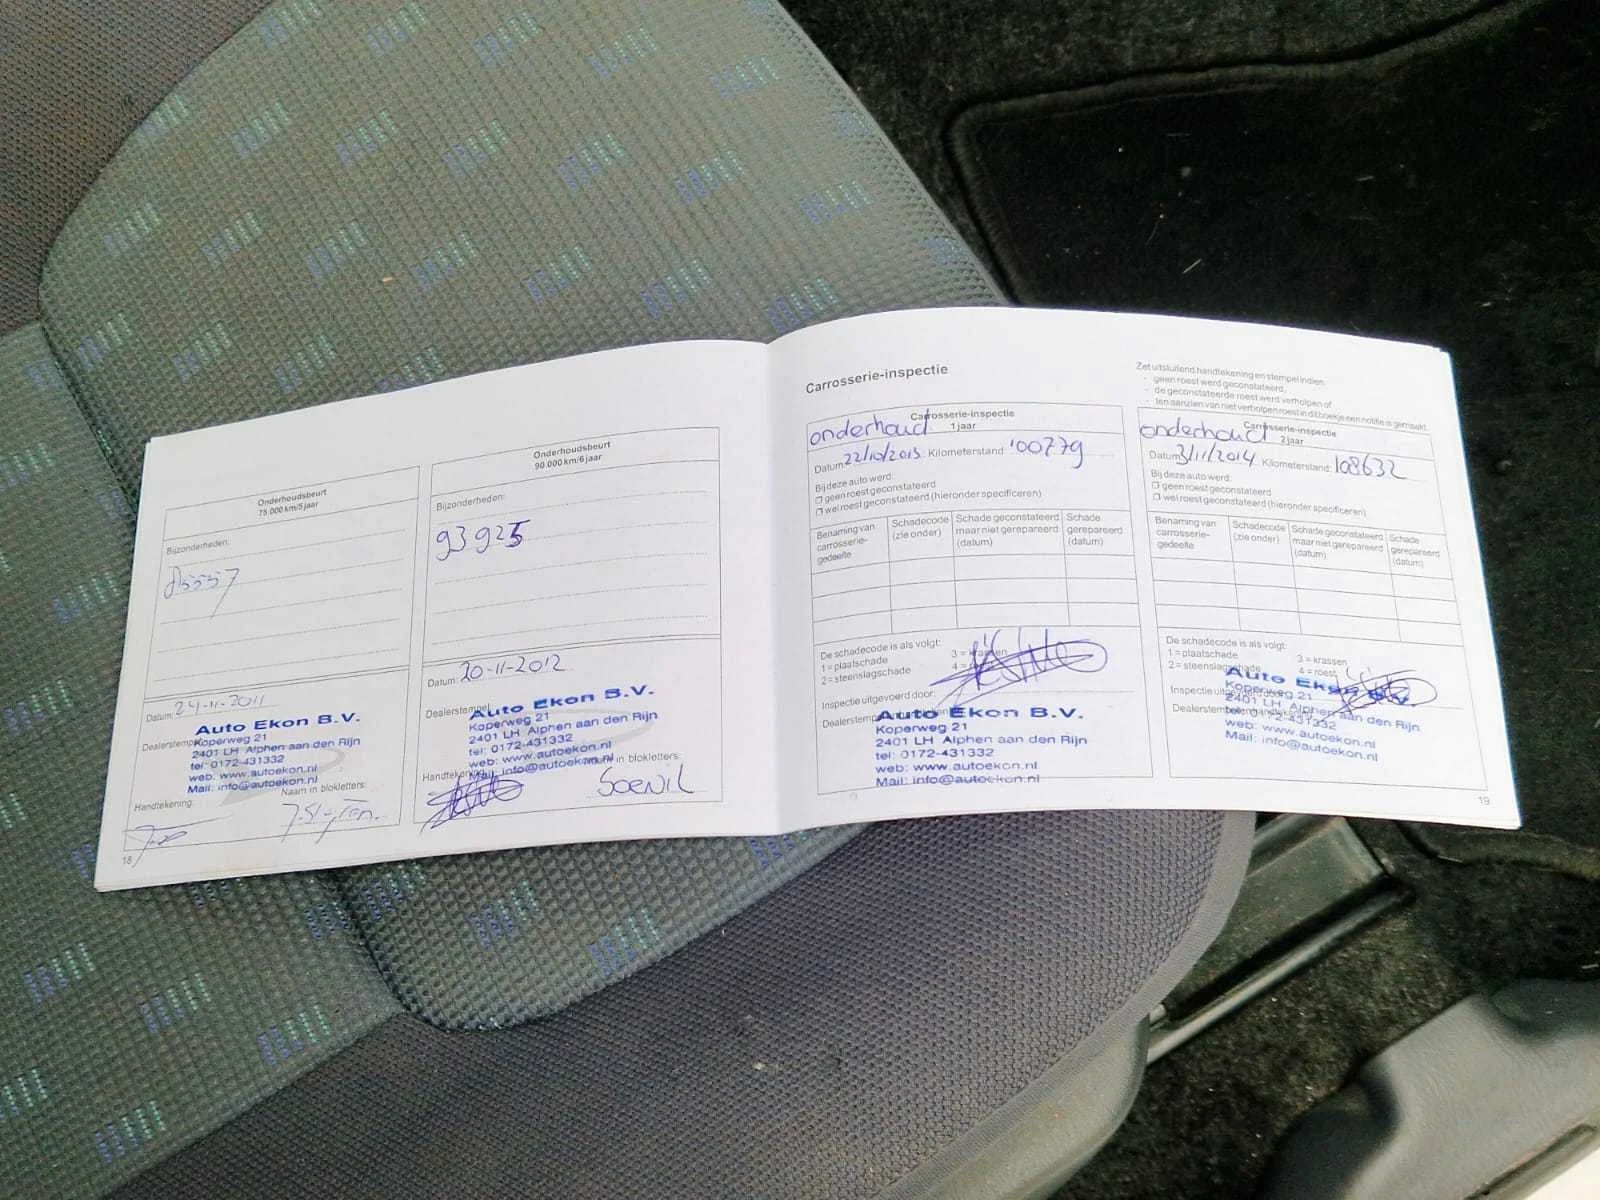 Onderhoudsbeurt
75.000 km/5 jaar
Bijzonderheden:
85557
Datum: 24-11-2011
Dealerstempel
Auto Ekon B.V.
Koperweg 21
2401 LH Alphen aan den Rijn
tel: 0172-431332
web: www.autoekon.nl
Mail: info@autoekon.nl
Handtekening:
Naam in blokletters:
18
Onderhoudsbeurt
90.000 km/6 jaar
Bijzonderheden:
93925
Datum: 20-11-2012
Dealerstempel
Auto Ekon B.V.
Koperweg 21
2401 LH Alphen aan den Rijn
tel: 0172-431332
web: www.autoekon.nl
Mail: info@autoekon.nl
Handtekening
in blokletters:
Carrosserie-inspectie
Zet uitsluitend handtekening en stempel indien:
- geen roest werd geconstateerd,
- de geconstateerde roest werd verholpen of
- ten aanzien van niet verholpen roest in dit boekje een notitie is gemaakt.
Carrosserie-inspectie
onderhoud 1 jaar
Datum: 22/10/2013 Kilometerstand: 100779
Bij deze auto werd:
geen roest geconstateerd
wel roest geconstateerd (hieronder specificeren)
Benaming van carrosserie-gedeelte
Schadecode (zie onder)
Schade geconstateerd maar niet gerepareerd (datum)
Schade gerepareerd (datum)
De schadecode is als volgt:
1 = plaatschade
2 = steenslagschade
3 = krassen
4 =
Inspectie uitgevoerd door:
Auto Ekon B.V.
Koperweg 21
2401 LH Alphen aan den Rijn
tel: 0172-431332
web: www.autoekon.nl
Mail: info@autoekon.nl
Carrosserie-inspectie
onderhoud 2 jaar
Datum: 3/11/2014 Kilometerstand: 108632
Bij deze auto werd:
geen roest geconstateerd
wel roest geconstateerd (hieronder specificeren)
Benaming van carrosserie-gedeelte
Schadecode (zie onder)
Schade geconstateerd maar niet gerepareerd (datum)
Schade gerepareerd (datum)
De schadecode is als volgt:
1 = plaatschade
2 = steenslagschade
3 = krassen
4 = roest
Auto Ekon B.V.
Koperweg 21
2401 LH Alphen aan den Rijn
tel: 0172-431332
web: www.autoekon.nl
Mail: info@autoekon.nl
19